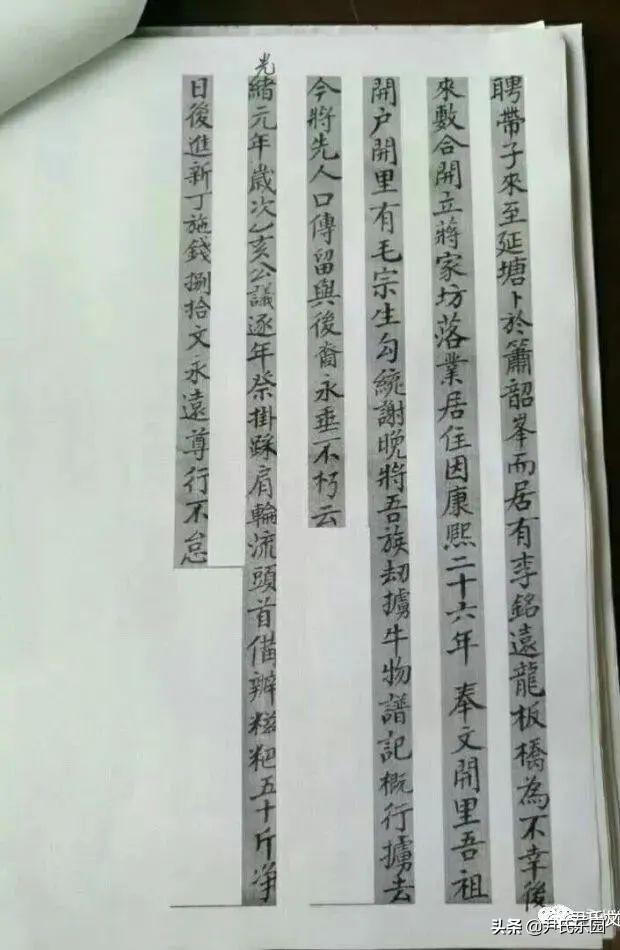 聘帶子來至延塘卜於簫韶峯而居有李銘遠龍板橋為不幸後
來數合開立蔣家坊落業居住因康熙二十六年 奉文開里吾祖
開户開里有毛宗生勾統謝晚將吾族刼擄牛物譜記概行擄去
今將先人口傳留與後裔永垂不朽云
光緒元年歲次乙亥公議逐年祭掛踩肩輪流頭首備辦糍粑五十斤凈
日後進新丁施錢捌拾文永遠尊行不怠
头条 @尹氏乐园